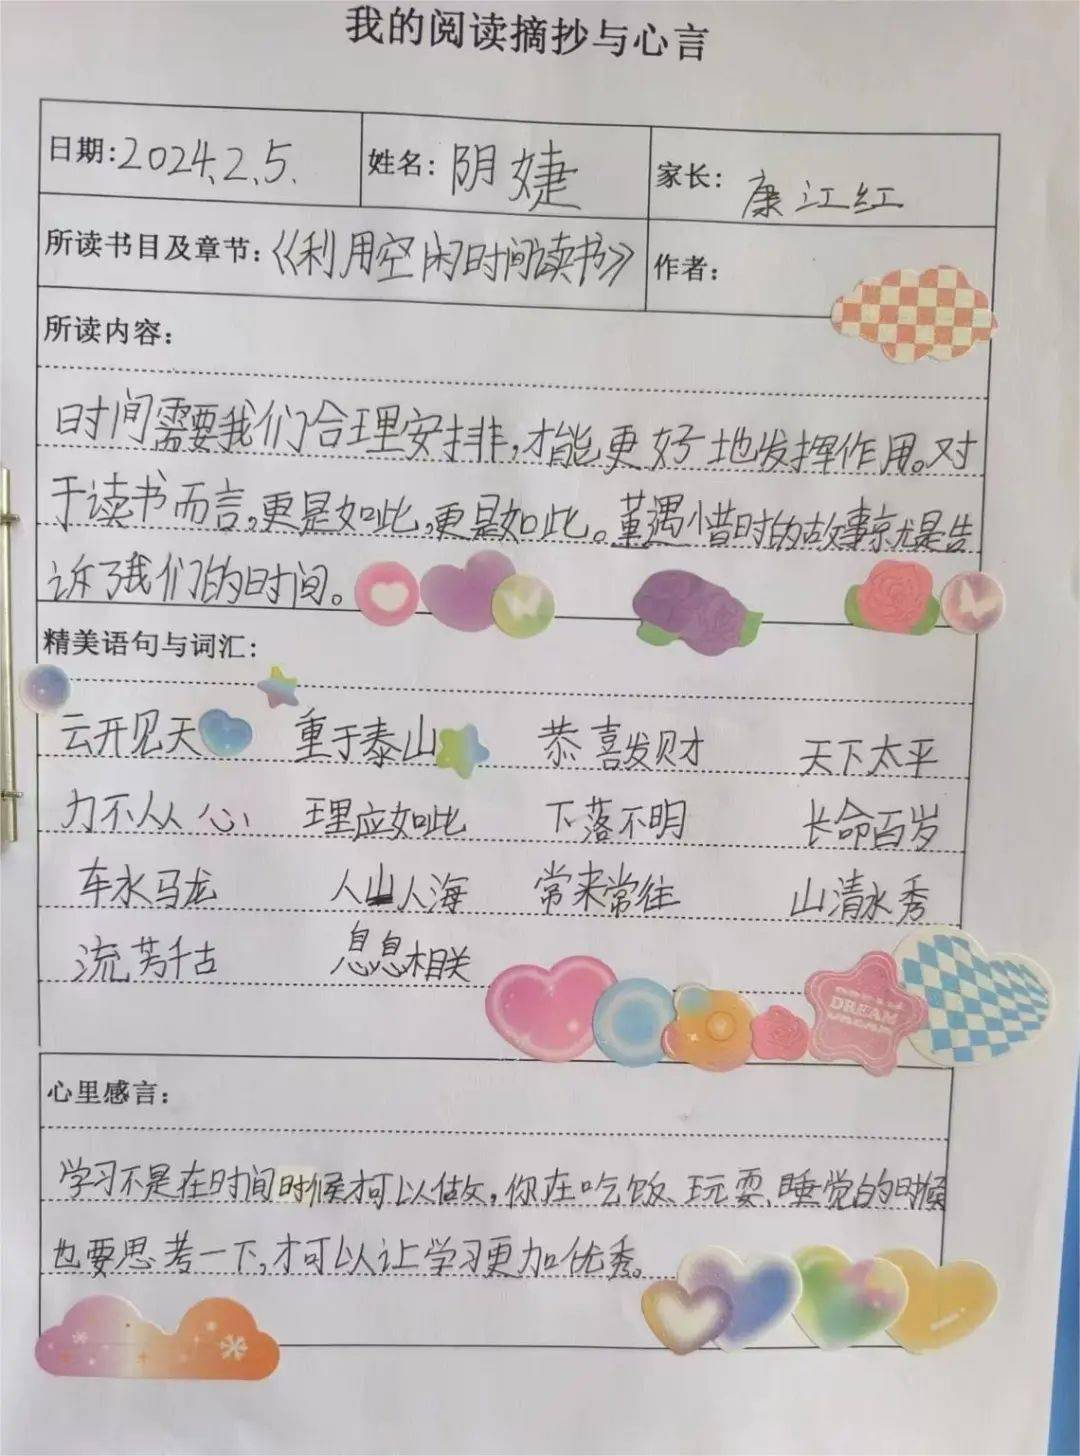 我的阅读摘抄与心言
日期:2024.2.5. 姓名:阴婕 家长:康江红
所读书目及章节:《利用空闲时间读书》 作者:
所读内容:
时间需要我们合理安排,才能更好地发挥作用。对
于读书而言,更是如此,更是如此。董遇惜时的故事就是告
诉了我们的时间。
精美语句与词汇:
云开见天 重于泰山 恭喜发财 天下太平
力不从心 理应如此 下落不明 长命百岁
车水马龙 人山人海 常来常往 山清水秀
流芳千古 息息相关
DREAM
心里感言:
学习不是在时间时候才可以做,你在吃饭、玩耍、睡觉的时候
也要思考一下,才可以让学习更加优秀。